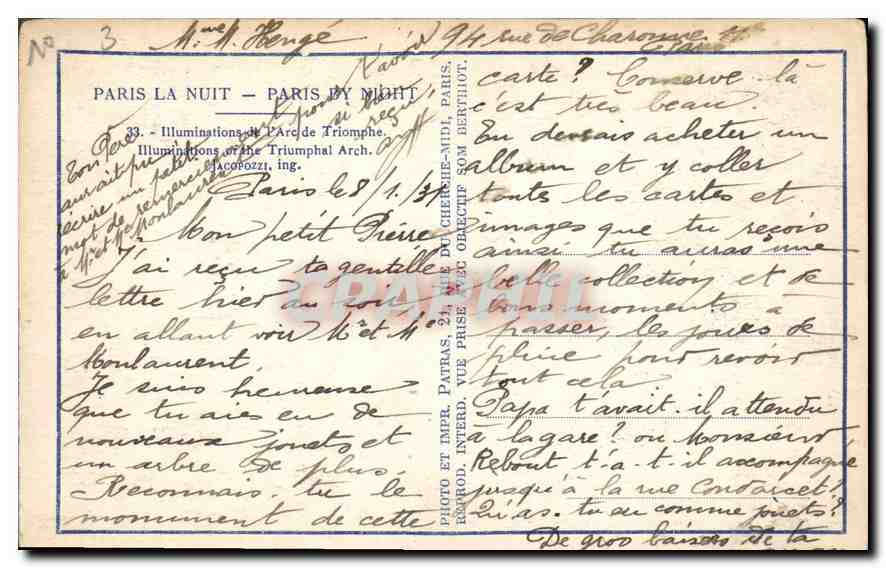 No 3 Mme M. Hengé 94 rue de Charonne 11e
Paris
PARIS LA NUIT — PARIS BY NIGHT
33. - Illuminations de l'Arc de Triomphe.
Illuminations of the Triumphal Arch.
JACOPOZZI, ing.
Ton Père
aurait pu
écrire un petit
mot de remerciement pour l'avoir
à Mr et Me Monlaurent si bien
reçu,
Paris le 8/1/37
Mon petit Pierre
J'ai reçu ta gentille
lettre hier au soir
en allant voir Mr et Me
Monlaurent.
Je suis heureuse
que tu aies eu de
nouveaux jouets et
un arbre de plus.
Reconnais-tu le
monument de cette
PHOTO ET IMPR. PATRAS, 21, RUE DU CHERCHE-MIDI, PARIS.
REPROD. INTERD. VUE PRISE AVEC OBJECTIF SOM BERTHIOT.
carte? Conserve-là
c'est très beau.
Tu devrais acheter un
album et y coller
toutes les cartes et
images que tu reçois
ainsi tu auras une
belle collection et de
bons moments à
passer, les jours de
pluie pour revoir
tout cela
Papa t'avait-il attendu
à la gare? ou Monsieur
Rebout t'a-t-il accompagné
jusqu'à la rue Condorcet?
Qu'as-tu eu comme jouets?
De gros baisers de ta
CPAPHIL